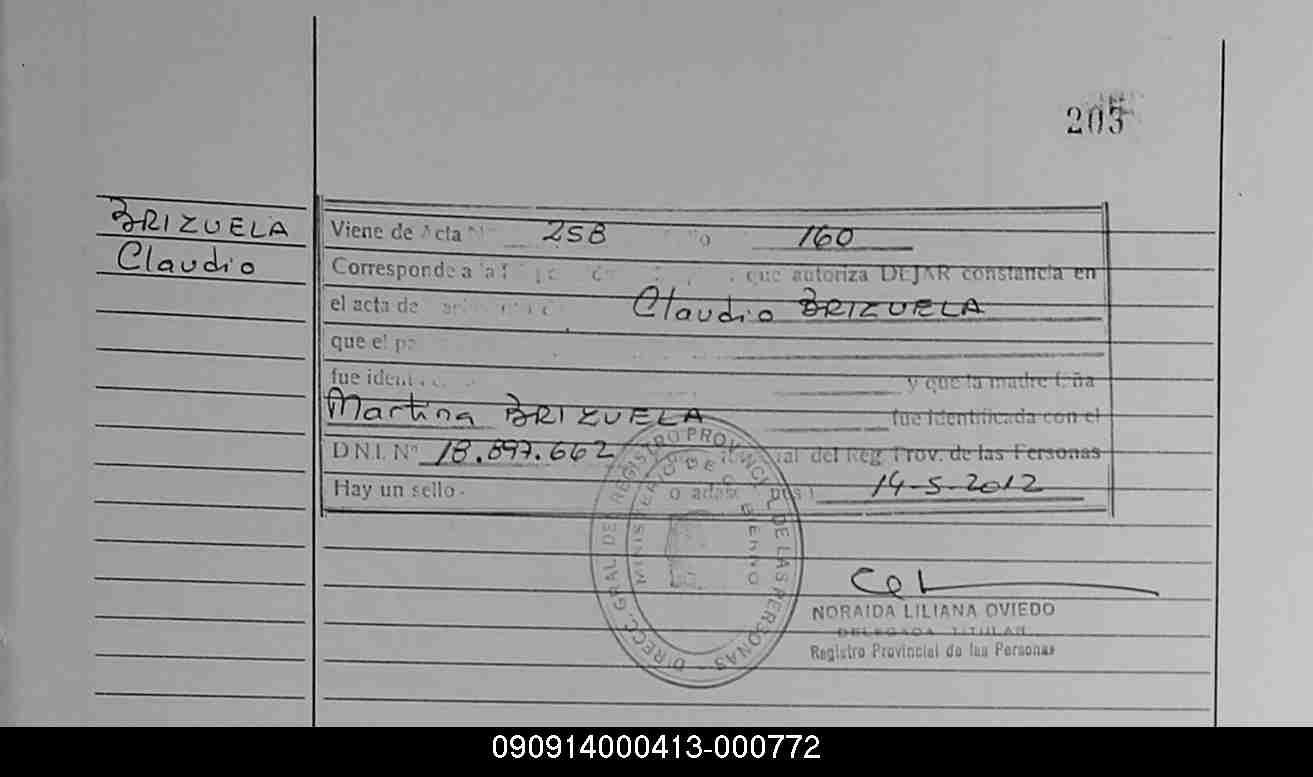 205
BRIZUELA
Claudio
Viene de Acta Nº 258 160
Corresponde a la que autoriza DEJAR constancia en
el acta de Claudio BRIZUELA
que el
fue y que la madre
Martina BRIZUELA fue identificada con el
D.N.I. Nº 18.897.662 del Reg. Prov. de las Personas
Hay un sello - 14-5-2012
DIRECC. GRAL. DE REGISTRO PROVINCIAL DE LAS PERSONAS -
MINISTERIO DE GOBIERNO
NORAIDA LILIANA OVIEDO
DELEGADA TITULAR
Registro Provincial de las Personas
090914000413-000772